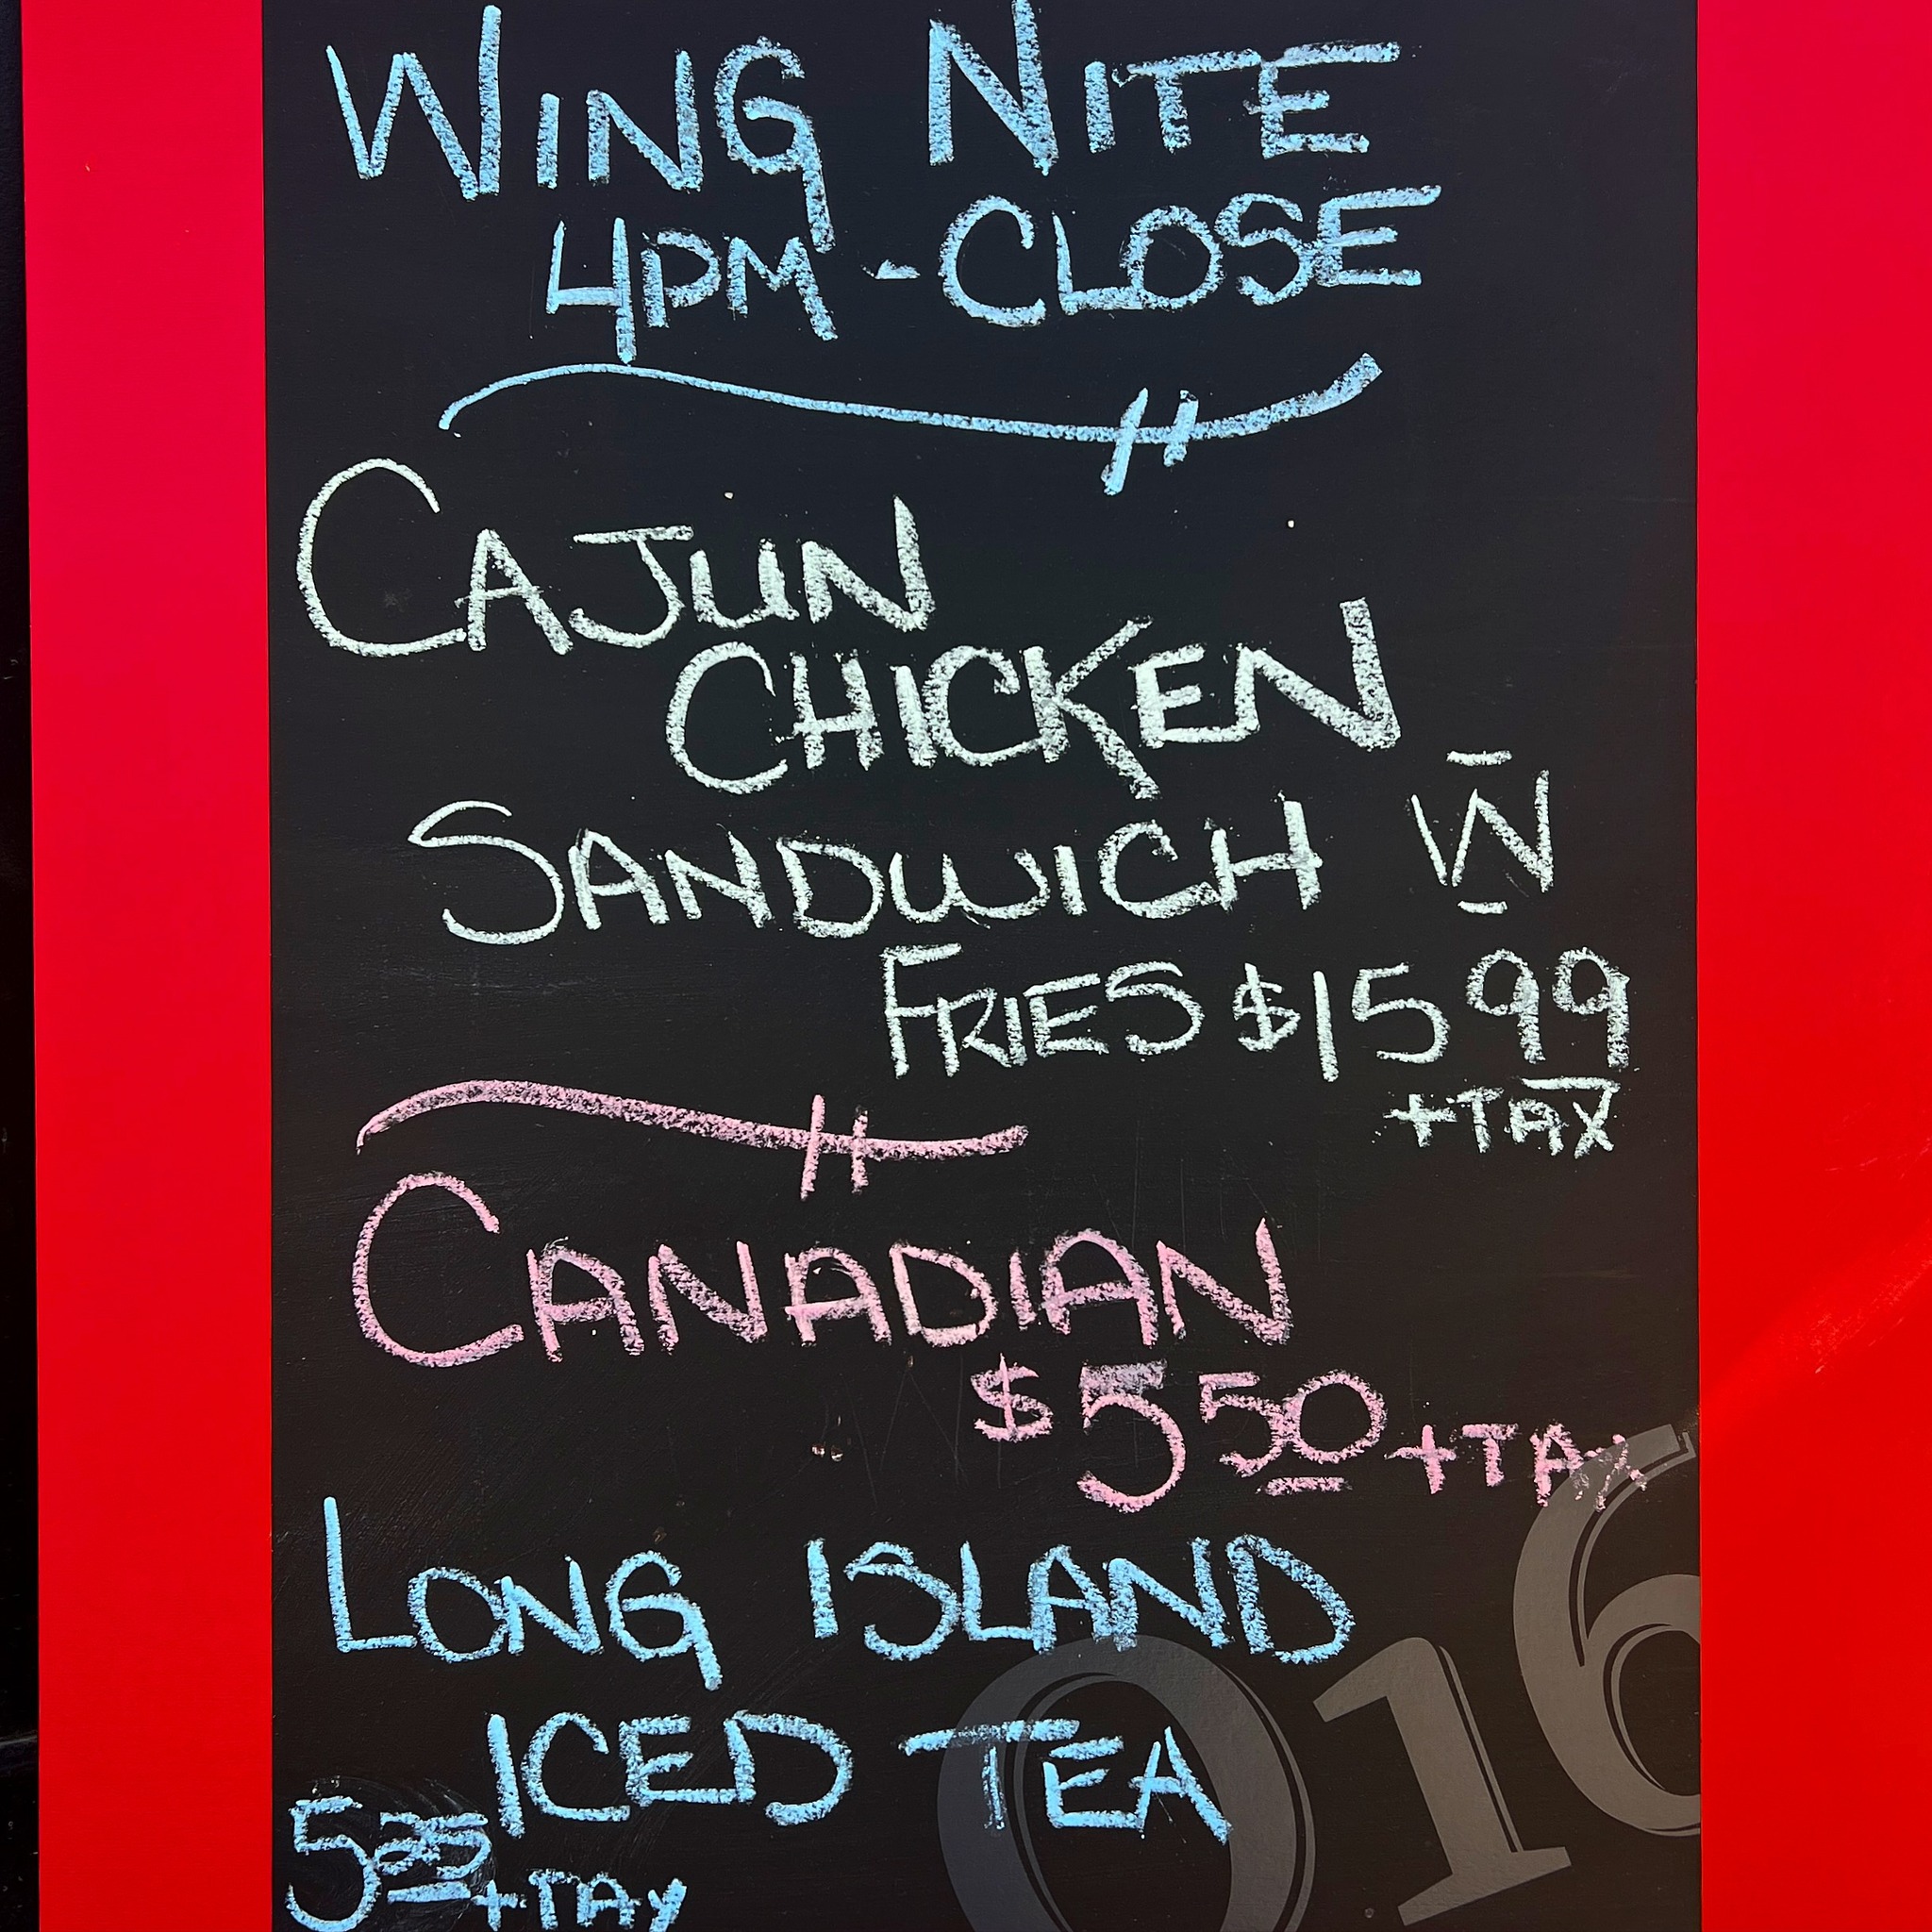 WING NITE
4PM - CLOSE
CAJUN
CHICKEN
SANDWICH W
FRIES $15 99
+TAX
CANADIAN
$5 50 +TAX
LONG ISLAND
ICED TEA
5 25
+TAX
016